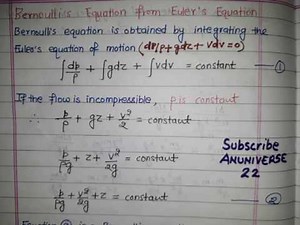 Bernoulli's Equation from Euler's Equation
Bernoull's equation is obtained by integrating the
Euler's equation of motion (dp/ρ+gdz+vdv=0)
∫dp/ρ + ∫gdz + ∫vdv = constant — ①
If the flow is incompressible, ρ is constant
∴ p/ρ + gz + v²/2 = constant
p/ρg + z + v²/2g = constant
Subscribe
ANUNIVERSE
22
p/ρg + v²/2g + z = constant — ②